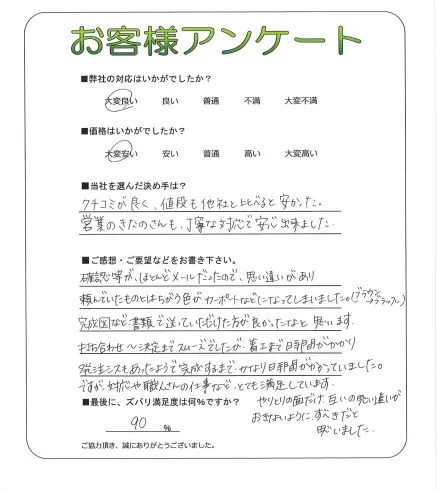 お客様アンケート
■弊社の対応はいかがでしたか？
大変良い 良い 普通 不満 大変不満
■価格はいかがでしたか？
大変安い 安い 普通 高い 大変高い
■当社を選んだ決め手は？
クチコミが良く、値段も他社と比べると安かった。
営業のきたのさんも、丁寧な対応で安心出来ました。
■ご感想・ご要望などをお書き下さい。
確認等が、ほとんどメールだったので、思い違いがあり
頼んでいたものとはちがう色がカーポートなどになってしまいました。(ブラウン→ブラック)
完成図など書類で送っていただけた方が良かったなと思います。
打ち合わせ〜決定までスムーズでしたが、着工まで日時間がかかり
発注ミスもあったようで完成するまでかなり日時間がかかっていました。
ですが、対応や職人さんの仕事など、とても満足しています。
■最後に、ズバリ満足度は何%ですか？
90 %
やりとりの面だけ、互いの思い違いが
おきないように、すべきだと
思いました。
ご協力頂き、誠にありがとうございました。